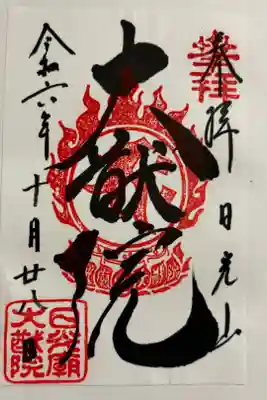 奉拝 日光山
大猷院
令和六年 十月廿八日
日光廟
大猷院